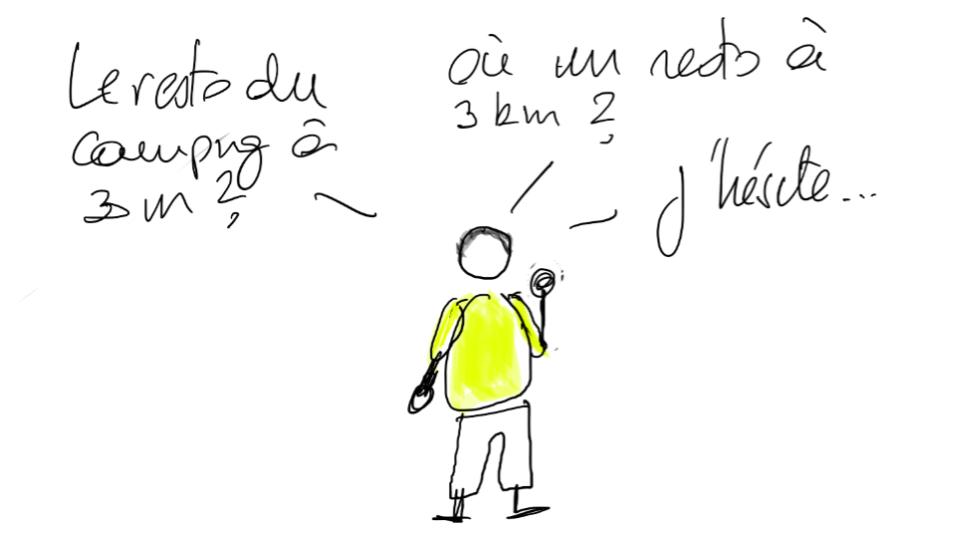 Le resto du
camping à
3 m ?
où un resto à
3 km ?
J'hésite...